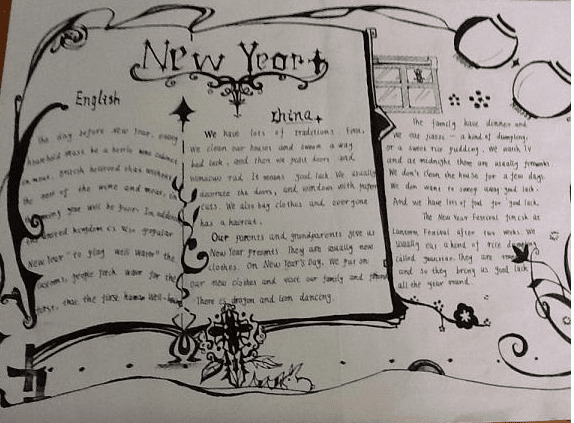 New Year
English
The day before New Year, every
household must be a bottle wine cabinet
in meat. British believed that without
the rest of the wine and meat, in
the coming year will be poor. In addition
the united kingdom is also popular
New Year "to play well water" the
customs, people fetch water for the
first, that the first human well-
China
We have lots of traditions. First,
We clean our houses and sweep a way
bad luck, and then we paint doors and
windows red. It means good luck. We usually
decorate the doors, and windows with paper
cuts. We also buy clothes and everyone
has a haircut.
Our parents and grandparents give us
New Year presents. They are usually new
clothes. On New Year's Day, We put on
our new clothes and visit our family and
There is dragon and lion dancing.
The family have dinner and
We eat jiaozi – a kind of dumpling,
or a sweet rice pudding. We watch TV
and at midnight there are usually fireworks
We don't clean the house for a few days.
We don want to sweep away good luck.
And we have lots of food for good luck.
The New Year Festival finish at
Lantern Festival after two weeks. We
usually eat a kind of rice dumpling
called yuanxiao. They are
and so they bring us good luck
all the year round.